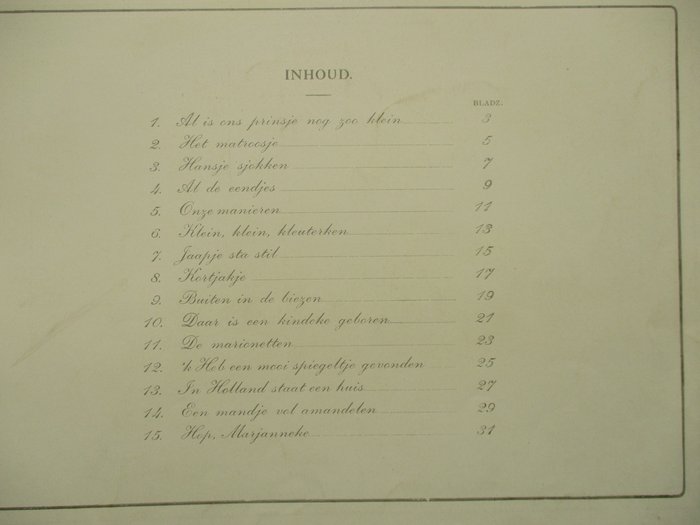 INHOUD.
BLADZ.
1. Al is ons prinsje nog zoo klein 3
2. Het matroosje 5
3. Hansje sjokken 7
4. Al de eendjes 9
5. Onze manieren 11
6. Klein, klein, kleuterken 13
7. Jaapje sta stil 15
8. Kortjakje 17
9. Buiten in de biezen 19
10. Daar is een kindeke geboren 21
11. De marionetten 23
12. 'k Heb een mooi spiegeltje gevonden 25
13. In Holland staat een huis 27
14. Een mandje vol amandelen 29
15. Hop, Marjanneke 31